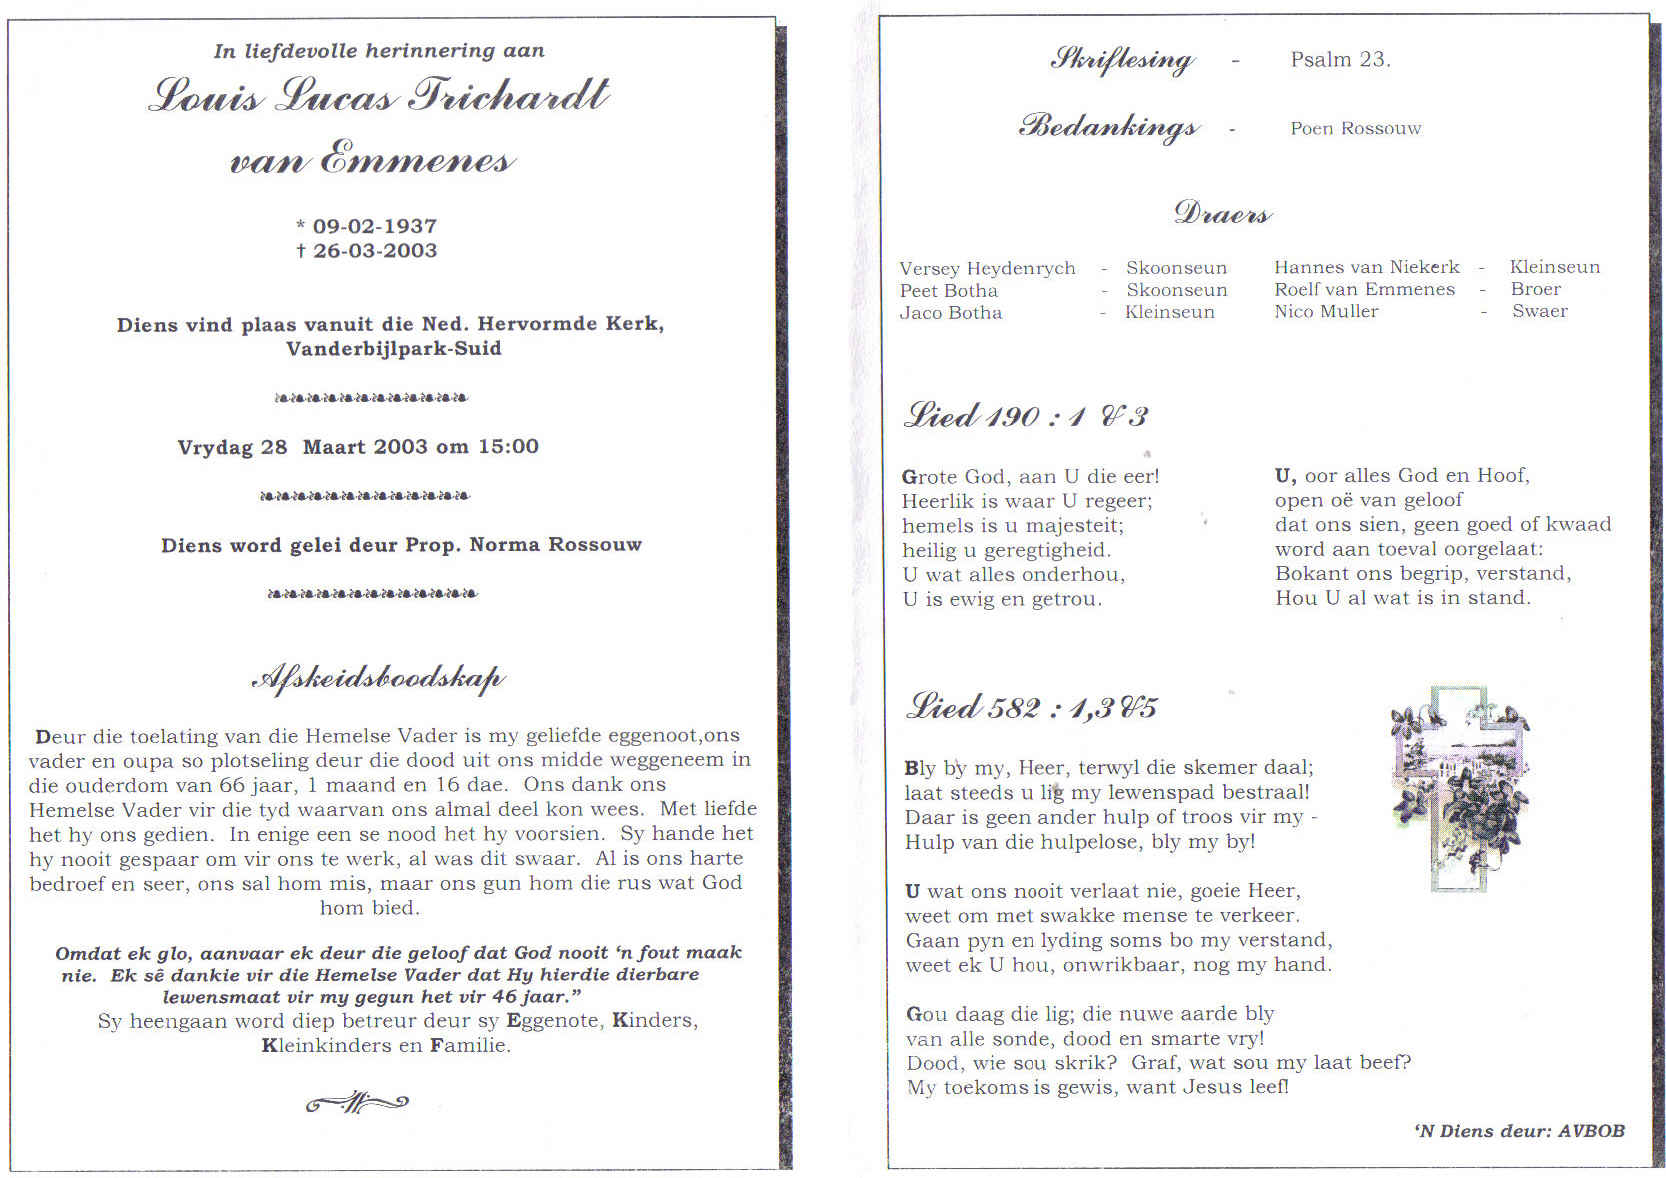 In liefdevolle herinnering aan
Louis Lucas Trichardt
van Emmenes
* 09-02-1937
† 26-03-2003
Diens vind plaas vanuit die Ned. Hervormde Kerk,
Vanderbijlpark-Suid
Vrydag 28 Maart 2003 om 15:00
Diens word gelei deur Prop. Norma Rossouw
Afskeidsboodskap
Deur die toelating van die Hemelse Vader is my geliefde eggenoot,ons
vader en oupa so plotseling deur die dood uit ons midde weggeneem in
die ouderdom van 66 jaar, 1 maand en 16 dae. Ons dank ons
Hemelse Vader vir die tyd waarvan ons almal deel kon wees. Met liefde
het hy ons gedien. In enige een se nood het hy voorsien. Sy hande het
hy nooit gespaar om vir ons te werk, al was dit swaar. Al is ons harte
bedroef en seer, ons sal hom mis, maar ons gun hom die rus wat God
hom bied.
Omdat ek glo, aanvaar ek deur die geloof dat God nooit ‘n fout maak
nie. Ek sê dankie vir die Hemelse Vader dat Hy hierdie dierbare
lewensmaat vir my gegun het vir 46 jaar.”
Sy heengaan word diep betreur deur sy Eggenote, Kinders,
Kleinkinders en Familie.
Skriflesing - Psalm 23.
Bedankings - Poen Rossouw
Draers
Versey Heydenrych - Skoonseun
Peet Botha - Skoonseun
Jaco Botha - Kleinseun
Hannes van Niekerk - Kleinseun
Roelf van Emmenes - Broer
Nico Muller - Swaer
Lied 190 : 1 & 3
Grote God, aan U die eer!
Heerlik is waar U regeer;
hemels is u majesteit;
heilig u geregtigheid.
U wat alles onderhou,
U is ewig en getrou.
U, oor alles God en Hoof,
open oë van geloof
dat ons sien, geen goed of kwaad
word aan toeval oorgelaat:
Bokant ons begrip, verstand,
Hou U al wat is in stand.
Lied 582 : 1,3&5
Bly by my, Heer, terwyl die skemer daal;
laat steeds u lig my lewenspad bestraal!
Daar is geen ander hulp of troos vir my -
Hulp van die hulpelose, bly my by!
U wat ons nooit verlaat nie, goeie Heer,
weet om met swakke mense te verkeer.
Gaan pyn en lyding soms bo my verstand,
weet ek U hou, onwrikbaar, nog my hand.
Gou daag die lig; die nuwe aarde bly
van alle sonde, dood en smarte vry!
Dood, wie sou skrik? Graf, wat sou my laat beef?
My toekoms is gewis, want Jesus leef!
‘N Diens deur: AVBOB